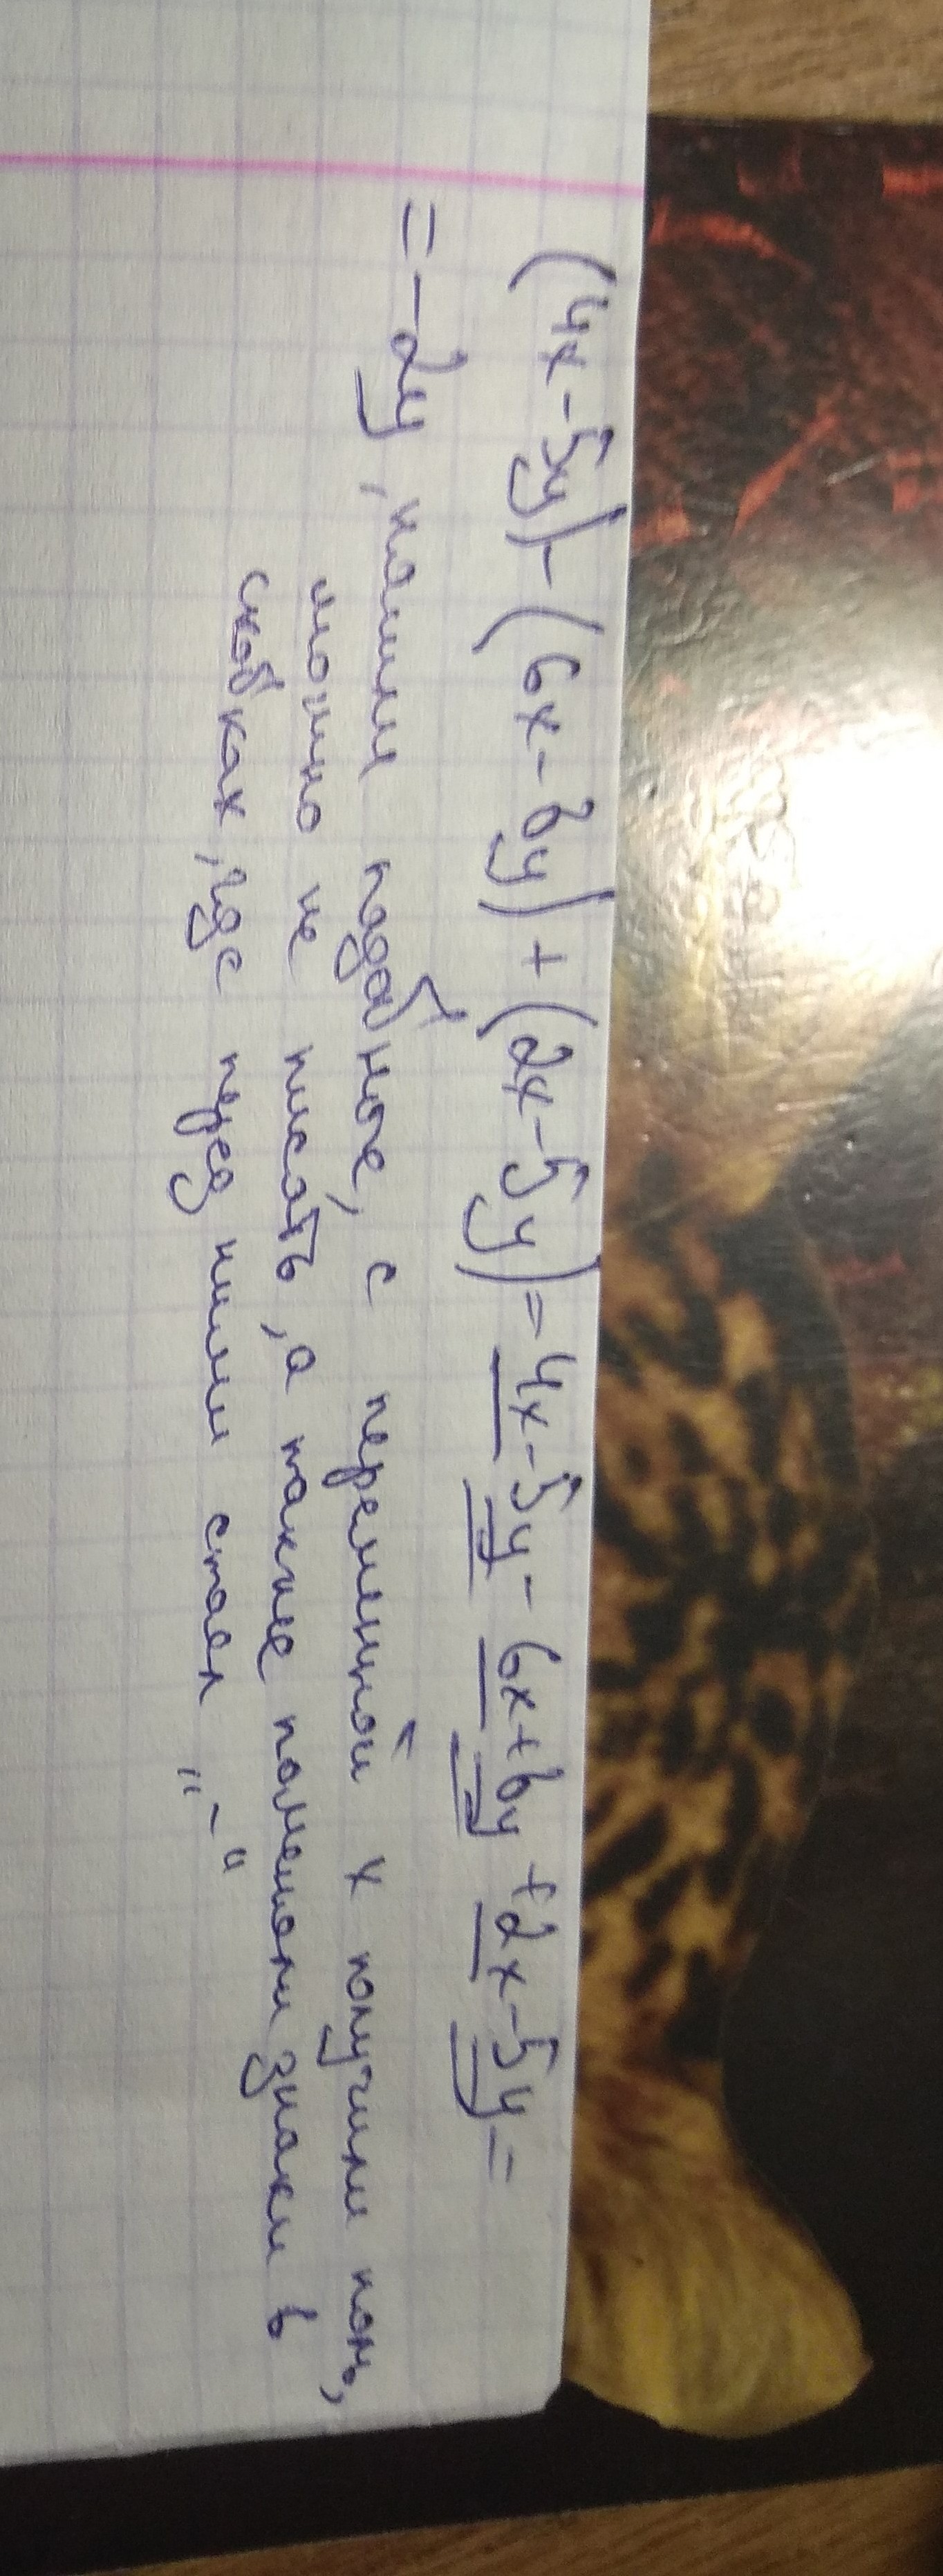 (4x-5y)-(6x-8y)+(2x-5y)=4x-5y-6x+8y+2x-5y=
=-2y, нашли подобные, с переменной x получили ноль,
можно не писать, а также поменяли знаки в
скобках, где перед ними стоял „-"